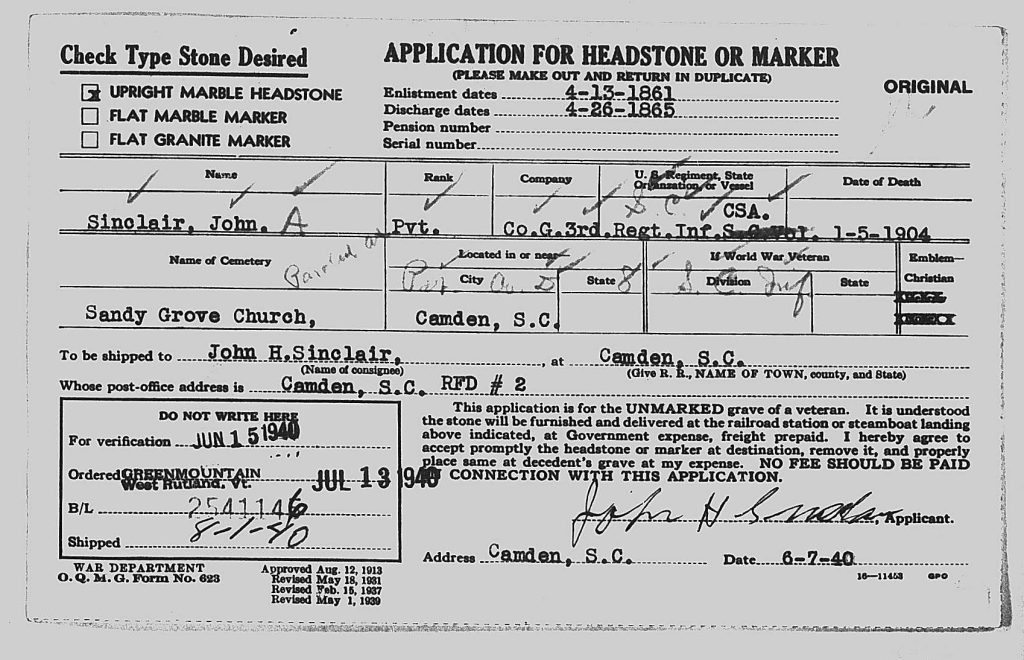 Check Type Stone Desired
UPRIGHT MARBLE HEADSTONE
FLAT MARBLE MARKER
FLAT GRANITE MARKER
APPLICATION FOR HEADSTONE OR MARKER
(PLEASE MAKE OUT AND RETURN IN DUPLICATE)
Enlistment dates 4-13-1861
Discharge dates 4-26-1865
Pension number
Serial number
ORIGINAL
Name Rank Company U. S. Regiment, State Organzation, or Vessel Date of Death
S. C.
CSA.
Sinclair, John. A Pvt. Co.G.3rd.Regt.Inf.S.C.Vol. 1-5-1904
Name of Cemetery Located in or near If World War Veteran Emblem—
Paroled as Pvt. Co. D S. C. Inf
City State Division State Christian
Sandy Grove Church, Camden, S.C.
To be shipped to John H.Sinclair, at Camden, S.C.
(Name of consignee) (Give R. R., NAME OF TOWN, county, and State)
Whose post-office address is Camden, S.C. RFD # 2
DO NOT WRITE HERE
For verification JUN 15 1940
Ordered GREENMOUNTAIN
West Rutland, Vt. JUL 13 1940
B/L 2541146
Shipped 8-1-40
This application is for the UNMARKED grave of a veteran. It is understood
the stone will be furnished and delivered at the railroad station or steamboat landing
above indicated, at Government expense, freight prepaid. I hereby agree to
accept promptly the headstone or marker at destination, remove it, and properly
place same at decedent's grave at my expense. NO FEE SHOULD BE PAID
CONNECTION WITH THIS APPLICATION.
John H Sinclair, Applicant.
Address Camden, S.C. Date 6-7-40
WAR DEPARTMENT
O. Q. M. G. Form No. 623
Approved Aug. 12, 1913
Revised May 18, 1931
Revised Feb. 15, 1937
Revised May 1, 1939
16—11453 GPO